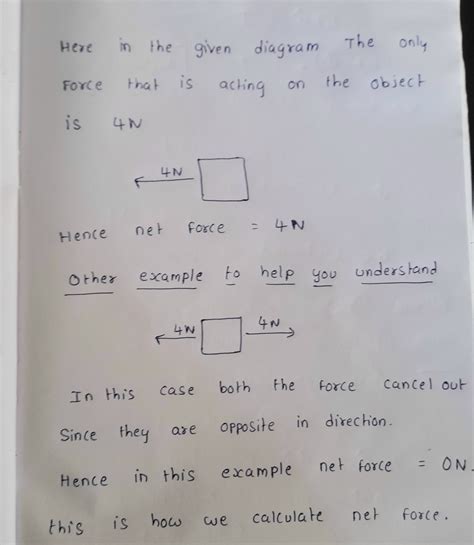 Here in the given diagram The only
Force that is acting on the object
is 4N
4N
Hence net force = 4N
Other example to help you understand
4N 4N
In this case both the force cancel out
Since they are opposite in direction.
Hence in this example net force = 0N.
this is how we calculate net force.